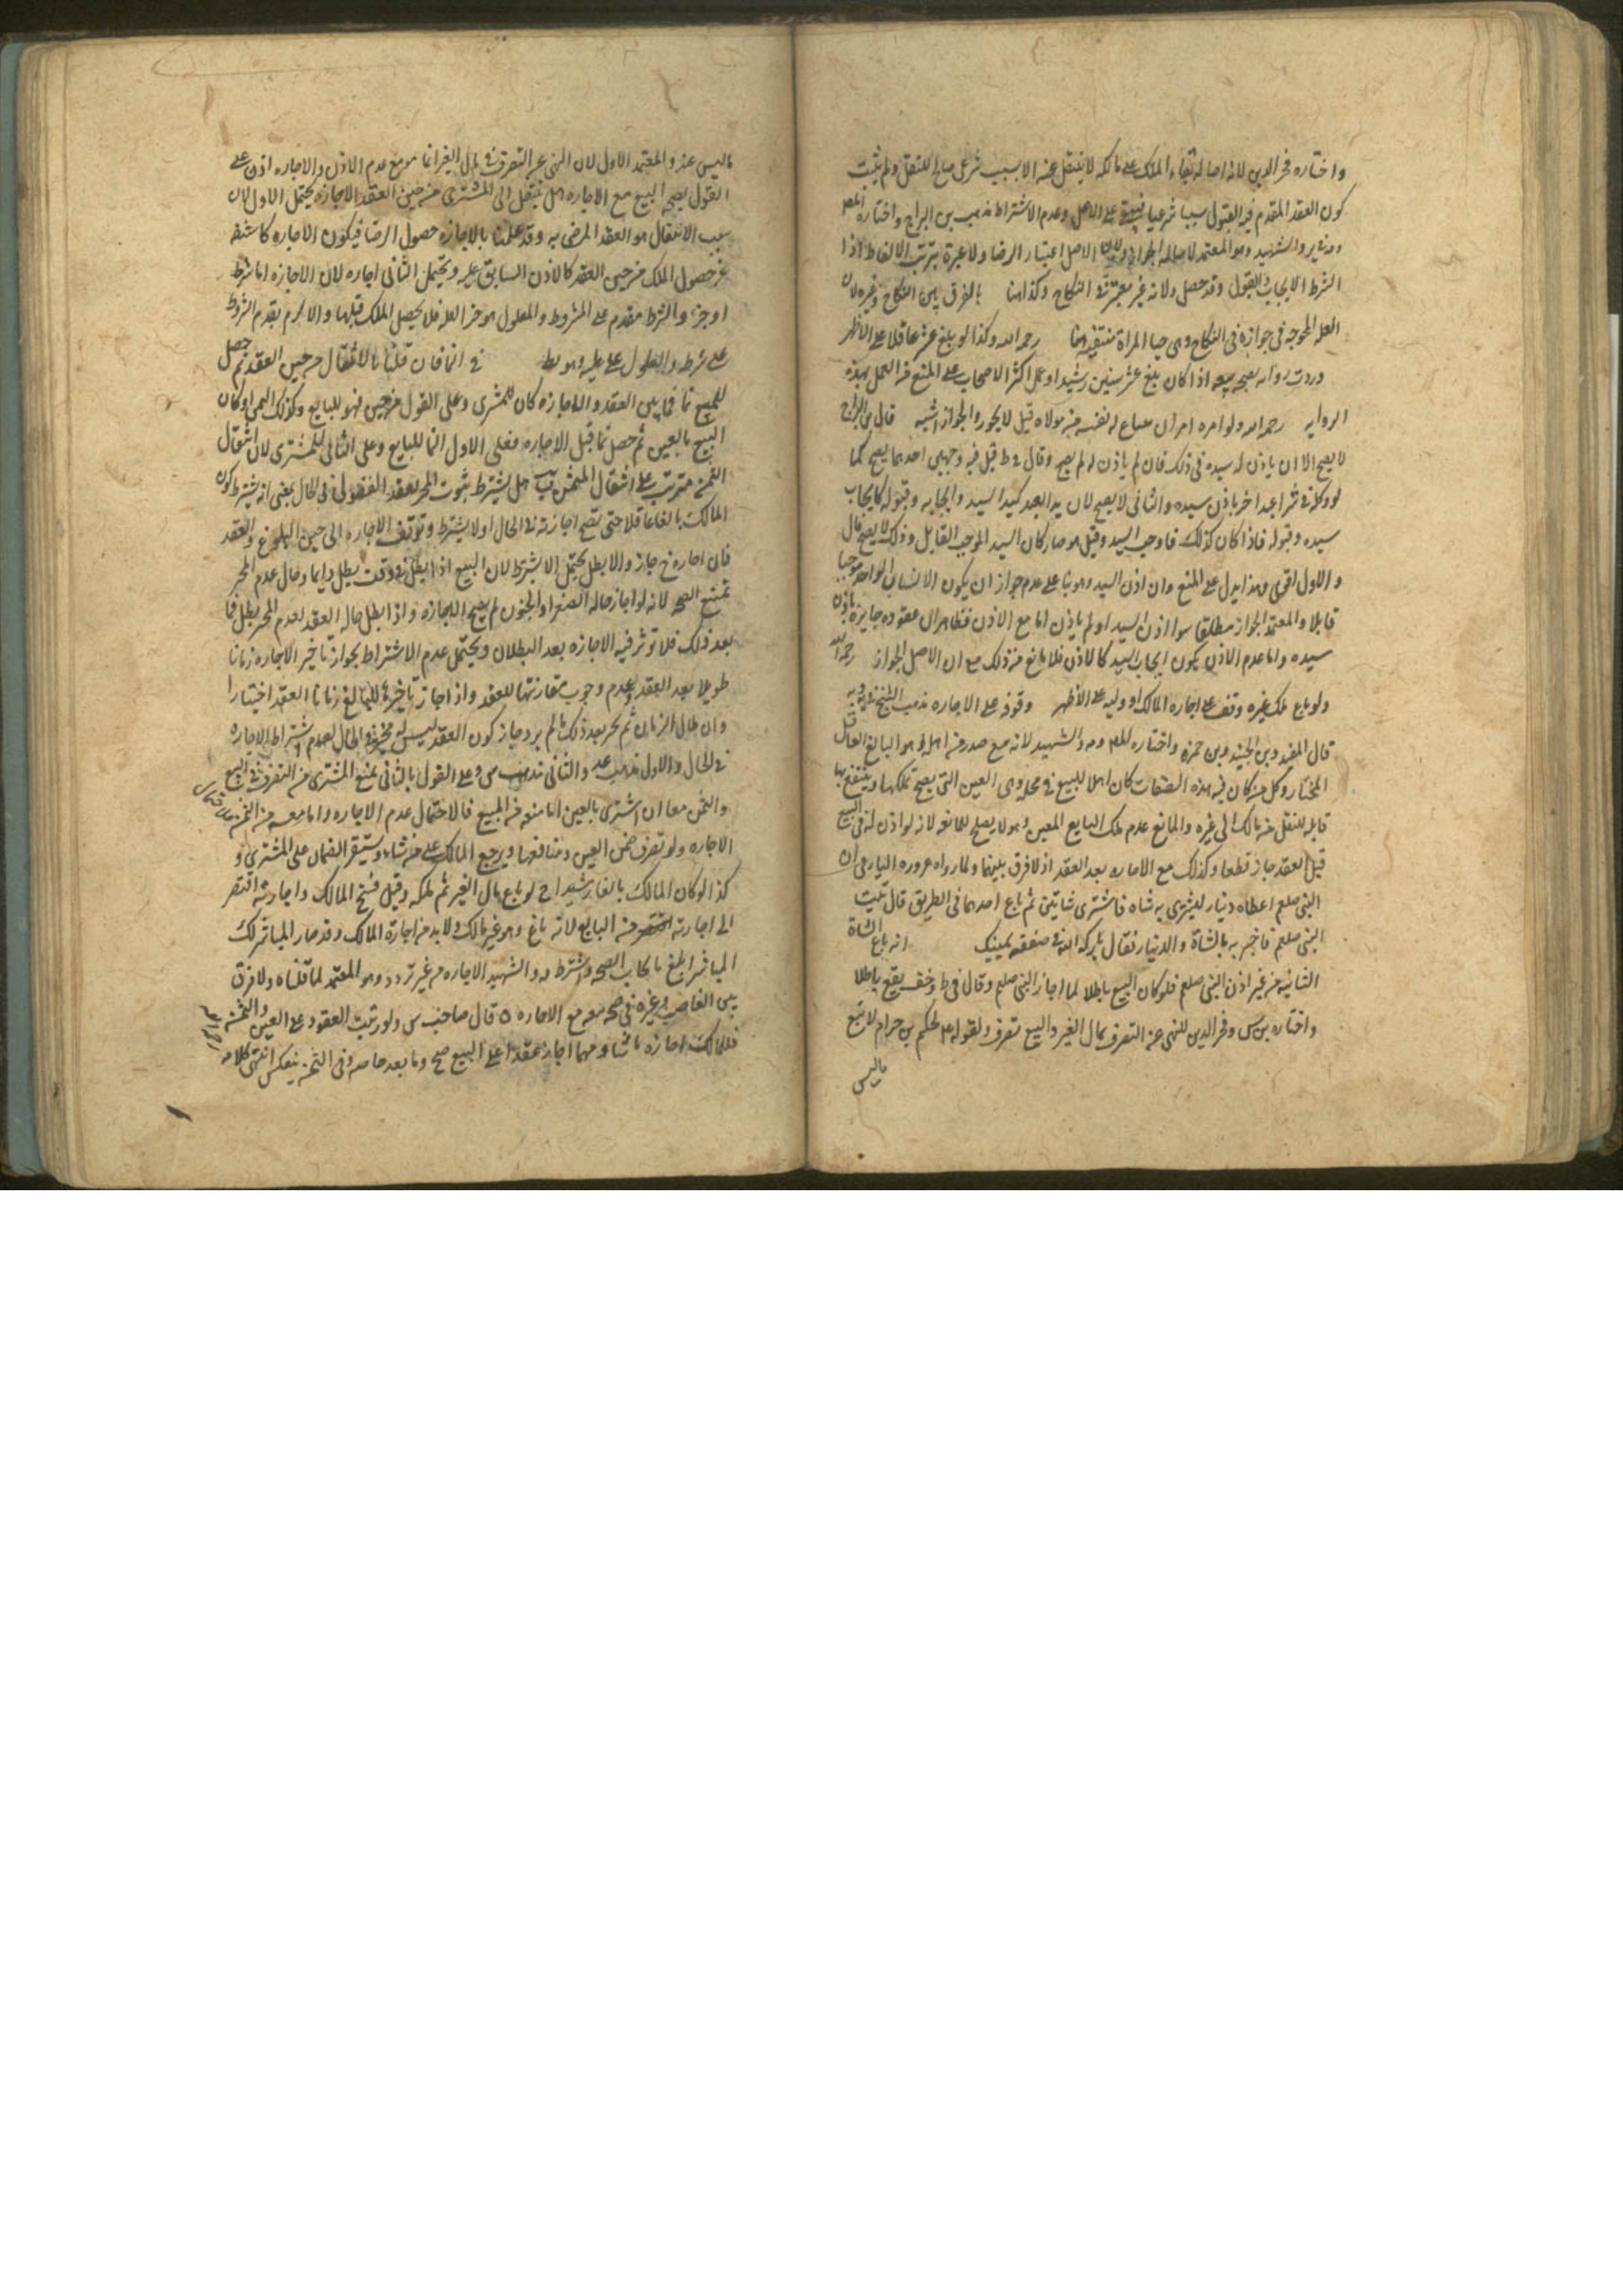 واختاره فخر الدين لانه اصاله بقاء الملك على مالكه لا ينتقل عنه الا بسبب شرعي صالح للنقل ولم يثبت
كون العقد المقدم فيه القبول سببا شرعيا فيبقى على الاصل وعدم الاشتراط مذهب بن البراج واختاره المص
والشهيد وهو المعتمد لاصاله الجواز ولان الاصل اعتبار الرضا ولا عبرة بترتب الالفاظ اذا
الشرط الايجاب والقبول وقد حصل ولانه غير معتبر في النكاح وكذا هنا بالفرق بين النكاح وغيره لان
العله الموجبه في جوازه في النكاح وهى حيا المراة منتفيه هنا رحمه الله وكذا لو بلغ عشرا عاقلا على الاظهر
وردت روايه بصحه بيعه اذا كان بلغ عشر سنين رشيدا وعمل اكثر الاصحاب على المنع من العمل بهذه
الروايه رحمه الله ولو امره امر ان يبتاع له نفسه من مولاه قيل لا يجوز والجواز اشبه قال بن البراج
لا يصح الا ان ياذن له سيده في ذلك فان لم ياذن له لم يصح وقال في ط قيل فيه وجهين احدهما يصح كما
لو وكله في شرا عبد اخر باذن سيده والثاني لا يصح لان يد العبد كيد السيد وايجابه وقبوله كايجاب
سيده وقبوله فاذا كان كذلك فاوجب السيد وقبل هو صار كان السيد الموجب القابل وذلك لا يصح قال
والاول اقوى وهذا يدل على المنع وان اذن السيد وهو بنا على عدم جواز ان يكون الانسان الواحد موجبا
قابلا والمعتمد الجواز مطلقا سوا اذن السيد او لم ياذن اما مع الاذن فظاهر لان عقوده جايزه باذن
سيده واما عدم الاذن يكون ايجاب السيد كالاذن فلا مانع من ذلك مع ان الاصل الجواز رحمه الله
ولو باع ملك غيره وقف على اجازه المالك او وليه على الاظهر وقوفه على الاجازه مذهب الشيخ في يه وبه
قال المفيد وبن الجنيد وبن حمزه واختاره المص والشهيد لانه بيع صدر من اهله وهو البالغ العاقل
المختار وكل من كان فيه هذه الصفات كان اهلا للبيع في محله وهى العين التي يصح تملكها وينتفع بها
قابله للنقل من مالك الى غيره والمانع عدم ملك البايع المعين وهو لا يصلح للمانعه لانه لو اذن له في البيع
قبل العقد جاز قطعا وكذلك مع الاجازه بعد العقد اذ لا فرق بينهما ولما رواه عروه البارقي ان
النبي صلعم اعطاه دينار ليشترى به شاه فاشترى شاتين ثم باع احدهما في الطريق قال تيت
النبي صلعم فاخبر به بالشاة والدينار فقال بارك الله في صفقه يمينك انه باع الشاة
الثانيه من غير اذن النبي صلعم فلو كان البيع باطلا لما اجاز النبي صلعم وقال في ط وخف يقع باطلا
واختاره بن س وفخر الدين للنهى عن التصرف بمال الغير والبيع تصرف ولقوله لحكيم بن حزام لا تبع
ما ليس
ما ليس عندك والمعتمد الاول لان النهى عن التصرف في مال الغير انما هو مع عدم الاذن والاجازه اذن على
القول بصحه البيع مع الاجازه هل ينتقل الى المشترى من حين العقد او الاجازه يحتمل الاول لان
سبب الانتقال هو العقد المرضى به وقد علمنا بالاجازه حصول الرضا فيكون الاجازه كاشفه
عن حصول الملك من حين العقد كالاذن السابق عليه ويحتمل الثاني اجازه لان الاجازه اما شرط
او جزء والشرط مقدم على المشروط والمعلول هو جزء العله فلا يحصل الملك قبلها والا لزم تقدم المشروط
على شرطه والمعلول على عليته وهو بط في النما فان قلنا بالانتقال من حين العقد ثم حصل
للمبيع نما فيما بين العقد والاجازه كان للمشترى وعلى القول من حين فهو للبايع وكذلك الثمن لو كان
البيع بالعين ثم حصل نما قبل الاجازه فعلى الاول النما للبايع وعلى الثاني للمشترى لان انتقال
الثمن مترتب على انتقال المثمن هل يشترط ثبوت المجيز لعقد الفضولى في الحال بمعنى انه يشترط كون
المالك بالغا عاقلا حتى تصح اجازته في الحال او لا يشترط وتوقف الاجازه الى حين البلوغ والعقد
فان اجازه ح جاز والا بطل يحتمل الاشتراط لان البيع اذا بطل في وقت بطل دايما وحال عدم المجيز
تمتنع الصحه لانه لو اجاز حاله الصغر او الجنون لم يصح الاجازه واذا بطل حاله العقد لعدم المجيز بطل فيما
بعد ذلك فلا توثر فيه الاجازه بعد البطلان ويحتمل عدم الاشتراط بجواز تاخير الاجازه زمانا
طويلا بعد العقد وعدم وجوب مقارنتها للعقد واذ اجاز تاخيره للبالغ زمانا العقد اختيارا
وان طال الزمان ثم يجيز بعد ذلك ما لم يرد جاز كون العقد ليس له مجيز في الحال لعدم اشتراط الاجازه
في الحال والاول مذهب والثاني مذهب س وعلى القول بالثاني يمنع المشترى من التصرف في البيع
والثمن معا ان اشترى بالعين اما منعه من المبيع فلاحتمال عدم الاجازه واما منعه من الثمن
الاجازه ولو تصرف ضمن العين ومنافعها ويرجع المالك على من شاء ويستقر الضمان على المشترى و
كذا لو كان المالك بالغا رشيدا ح لو باع مال الغير ثم ملكه وقبل فسخ المالك واجازته افتقر
الى اجازته من البايع لانه باع وهو غير مالك ولا بد من اجازة المالك وقد صار المباشر لك
المباشر ابلغ بايجاب الصحه واشترط والشهيد الاجازه من غير تردد وهو المعتمد لما قلناه ولا فرق
بين الغاصب وغيره في صحه بيعه مع الاجازه قال صاحب س ولو ترتبت العقود على العين والثمن
فللمالك اجازه ما شا ومهما اجاز عقدا على المبيع صح وما بعده خاصه وفى الثمن ينعكس انتهى كلامه